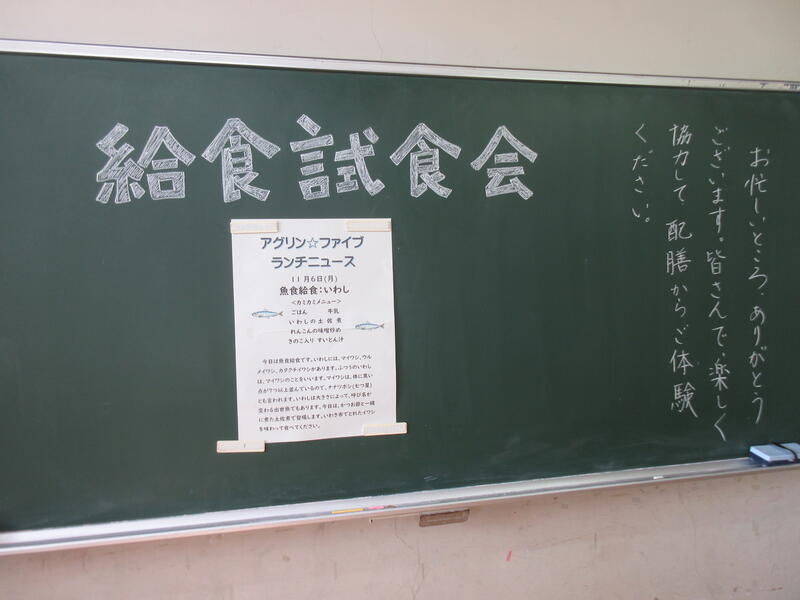 給食試食会
お忙しいところ、ありがとう
ございます。皆さんで、楽しく
協力して、配膳からご体験
ください。
アグリン☆ファイブ
ランチニュース
11月6日(月)
魚食給食:いわし
<カミカミメニュー>
ごはん 牛乳
いわしの土佐煮
れんこんの味噌炒め
きのこ入りすいとん汁
今日は魚食給食です。いわしには、マイワシ、ウル
メイワシ、カタクチイワシがあります。ふつうのいわし
は、マイワシのことをいいます。マイワシは、体に黒い
点が7つ以上並んでいるので、ナナツボシ(七つ星)
とも言われます。いわしは大きさによって、呼び名が
変わる出世魚でもあります。今日は、かつお節と一緒
に煮た土佐煮で登場します。いわき市でとれたイワシ
を味わって食べてください。